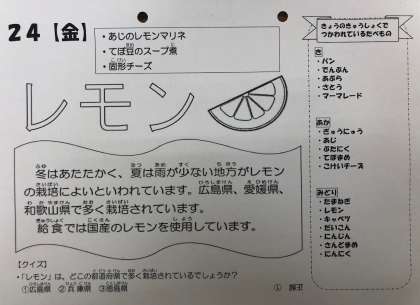 24【金】
・あじのレモンマリネ
・てぼ豆のスープ煮
・固形チーズ
レモン
冬はあたたかく、夏は雨が少ない地方がレモン
の栽培によいといわれています。広島県、愛媛県、
和歌山県で多く栽培されています。
給食では国産のレモンを使用しています。
【クイズ】
・「レモン」は、どこの都道府県で多く栽培されているでしょうか?
①広島県 ②兵庫県 ③徳島県
きょうのきゅうしょくで
つかわれているたべもの
き
・パン
・でんぷん
・あぶら
・さとう
・マーマレード
あか
・ぎゅうにゅう
・あじ
・ぶたにく
・てぼまめ
・こけいチーズ
みどり
・たまねぎ
・レモン
・キャベツ
・だいこん
・にんじん
・さんどまめ
・にんにく